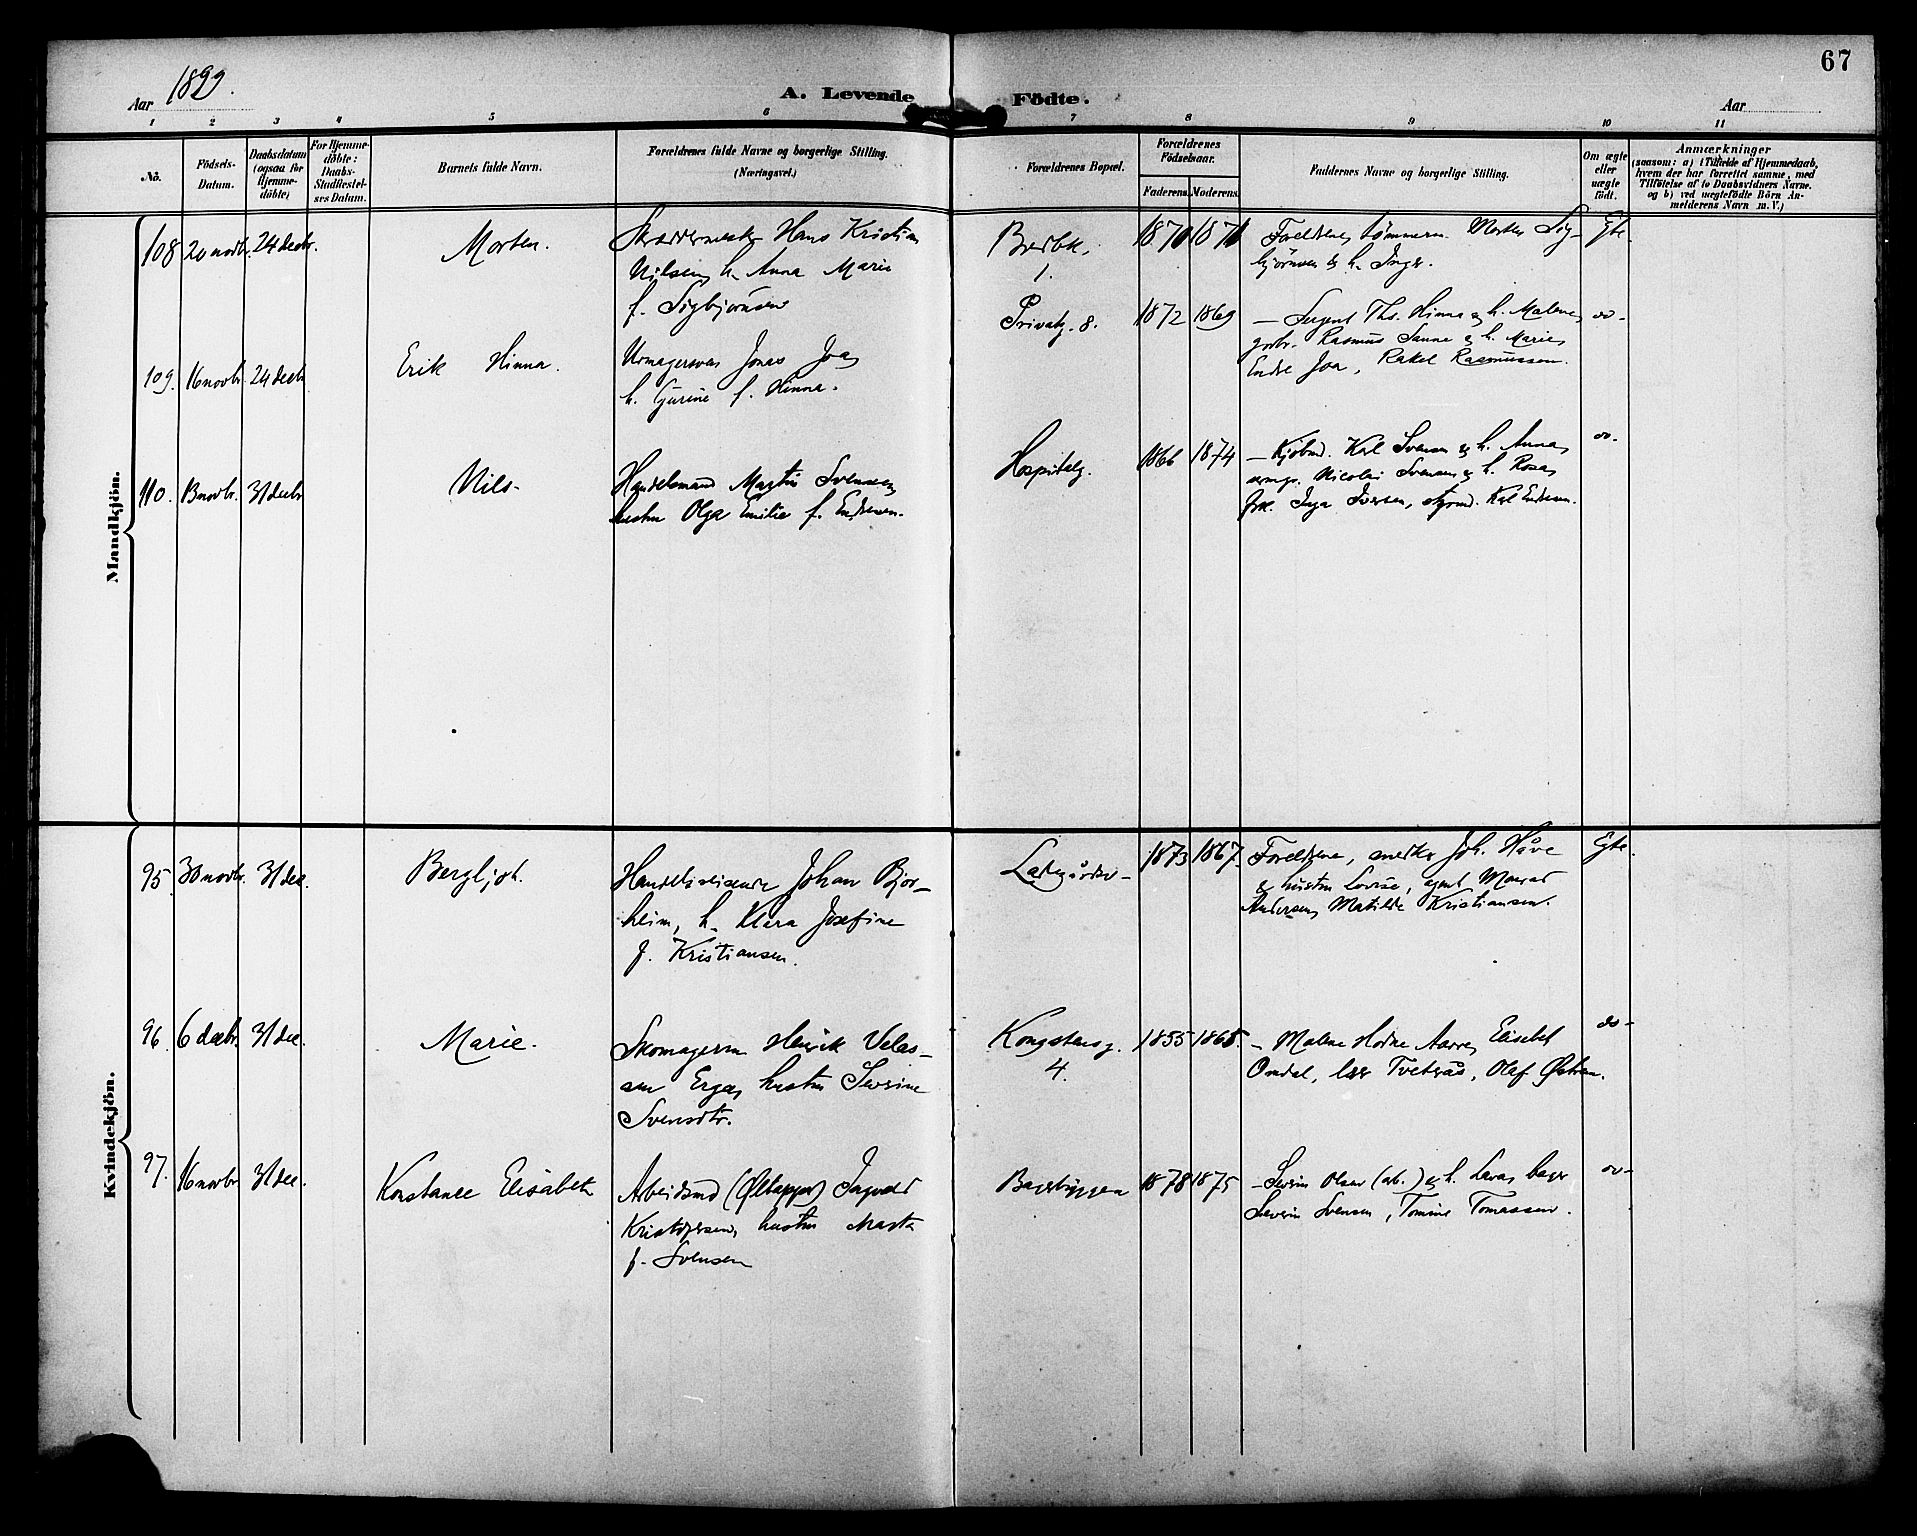 67
Aar 1899.
A. Levende Födte.
Aar
1 2 3 4 5 6 7 8 9 10 11
No.
Födsels-Datum.
Daabsdatum (ogsaa for Hjemme-döbte)
For Hjemme-döbte: Daabs-Stadfæstel-ses Datum.
Barnets fulde Navn.
Forældrenes fulde Navne og borgerlige Stilling.
(Næringsvei.)
Forældrenes Bopæl.
Forældrenes Födselsaar.
Faderens. Moderens.
Faddernes Navne og borgerlige Stilling.
Om ægte eller uægte födt.
Anmærkninger
(saasom: a) i Tilfælde af Hjemmedaab,
hvem der har forrettet samme, med
Tilföielse af to Daabsvidners Navne.
og b) ved uægtefödte Börn An-
melderens Navn m. V.)
Mandkjön.
108 20 novbr. 24 decbr. Morten. Hans Kristian
Nilsen, h. Anna Marie
f. Sigbjörnsen
1. 1870 1871 Forældrene, tömmerm. Morten Sig-
björnsen & h. Inger. Egte.
109. 16 novbr. 24 decbr Erik Hinna. Urmagersvend Jonas Joa,
h. Gurine f. Hinna.
Privatg. 8. 1872 1869 — Sergent Ths. Hinna & h. Malene,
Rasmus Sanne & h. Marie,
Endre Joa, Rakel Rasmussen. do-
110. 13 novbr. 31 decbr Nils- Handelsmand Martin Svensen,
hustru Olga Emilie f. Endresen.
Hospitalg. 1866 1874 — Kjöbmd. Karl Svensen & h. Anna,
Nicolai Svensen & h. Rosa,
frk. Inga Iversen, styrmd. Karl Endresen. do-
Kvindekjön.
95 30 novbr. 31 dec. Bergljot. Handelsreisende Johan Bjor-
heim, h. Klara Josefine
f. Kristiansen.
Ladegårdsv- 1873 1867. Foreldrene, snedker Joh. Håve
& hustru Lovise, agent Monrad
Andersen, Matilde Kristiansen. Egte.
96. 6 decbr. 31 dec. Marie. Skomagerm Henrik Velas-
sen Erga, hustru Severine
Svensdtr.
Kongstensg. 4. 1855 1865. — Malene Hodne Aarre, Elisabet
Omdal, Tveterås, Olaf do-
97. 16 novbr 31 dec. Konstance Elisabeth Arbeidsmd (Öltapper) Ingvald
Kristofersen, hustru Marta
f. Svensen
Bagerbyggen 1878 1875 — Severin Olsen (arb.) & h. Lava, bager
Severin Svensen, Tomine Tomassen. do-